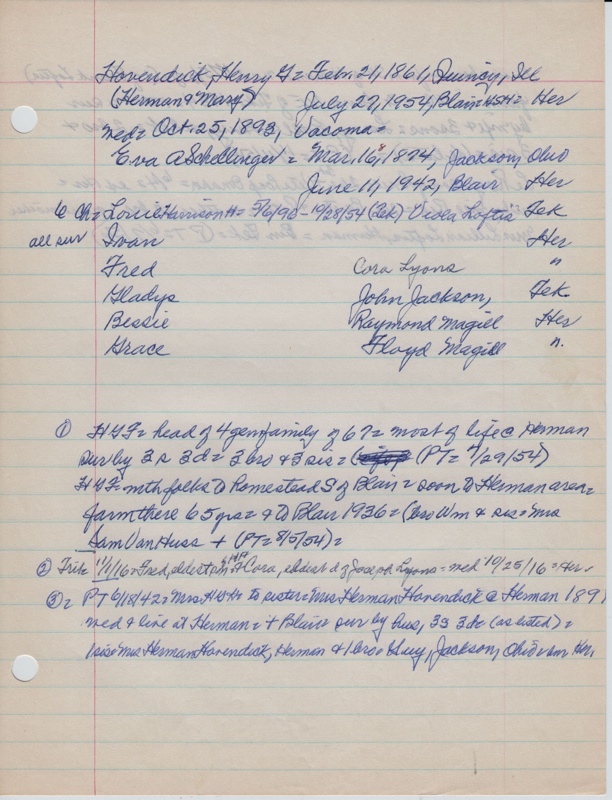 Hovendick, Henry G = Febr. 21, 1861, Quincy, Ill
(Herman & Mary) July 27, 1954, Blair = HSH = Her
med = Oct. 25, 1893, Tacoma =
Eva A Schellinger = Mar. 16, 1874, Jackson, Ohio
June 11, 1942, Blair Her
6 Ch = Louie Harrison H = - 10/28/54 (Tek) Viola Loftis Tek
all sur Ivan Her
Fred Cora Lyons "
Gladys John Jackson, Tek.
Bessie Raymond Magill Her
Grace Floyd Magill ".
① = head of 4 gen family of 67 = most of life @ Herman
sur by 3 s 3 d = 3 bro & 3 sis = (PT = 7/29/54)
with folks to homestead S of Blair = soon to Herman area =
farm there 65 yrs = & to Blair 1936 = (bro Wm & sis = Mrs
Sam Van Huss + (PT = 8/5/54) =
② Trib 11/1/16 = Fred, eldest son & Cora, eldest d of Joseph Lyons = med 10/25/16 = Her.
③ = PT 6/18/42 = Mrs HGH to sister = Mrs Herman Hovendick @ Herman 189
med & live at Herman = + Blair = sur by hus, 3s 3d (as listed) =
1 sis = Mrs Herman Hovendick, Herman & 1 bro = Guy, Jackson, Ohio = Her.